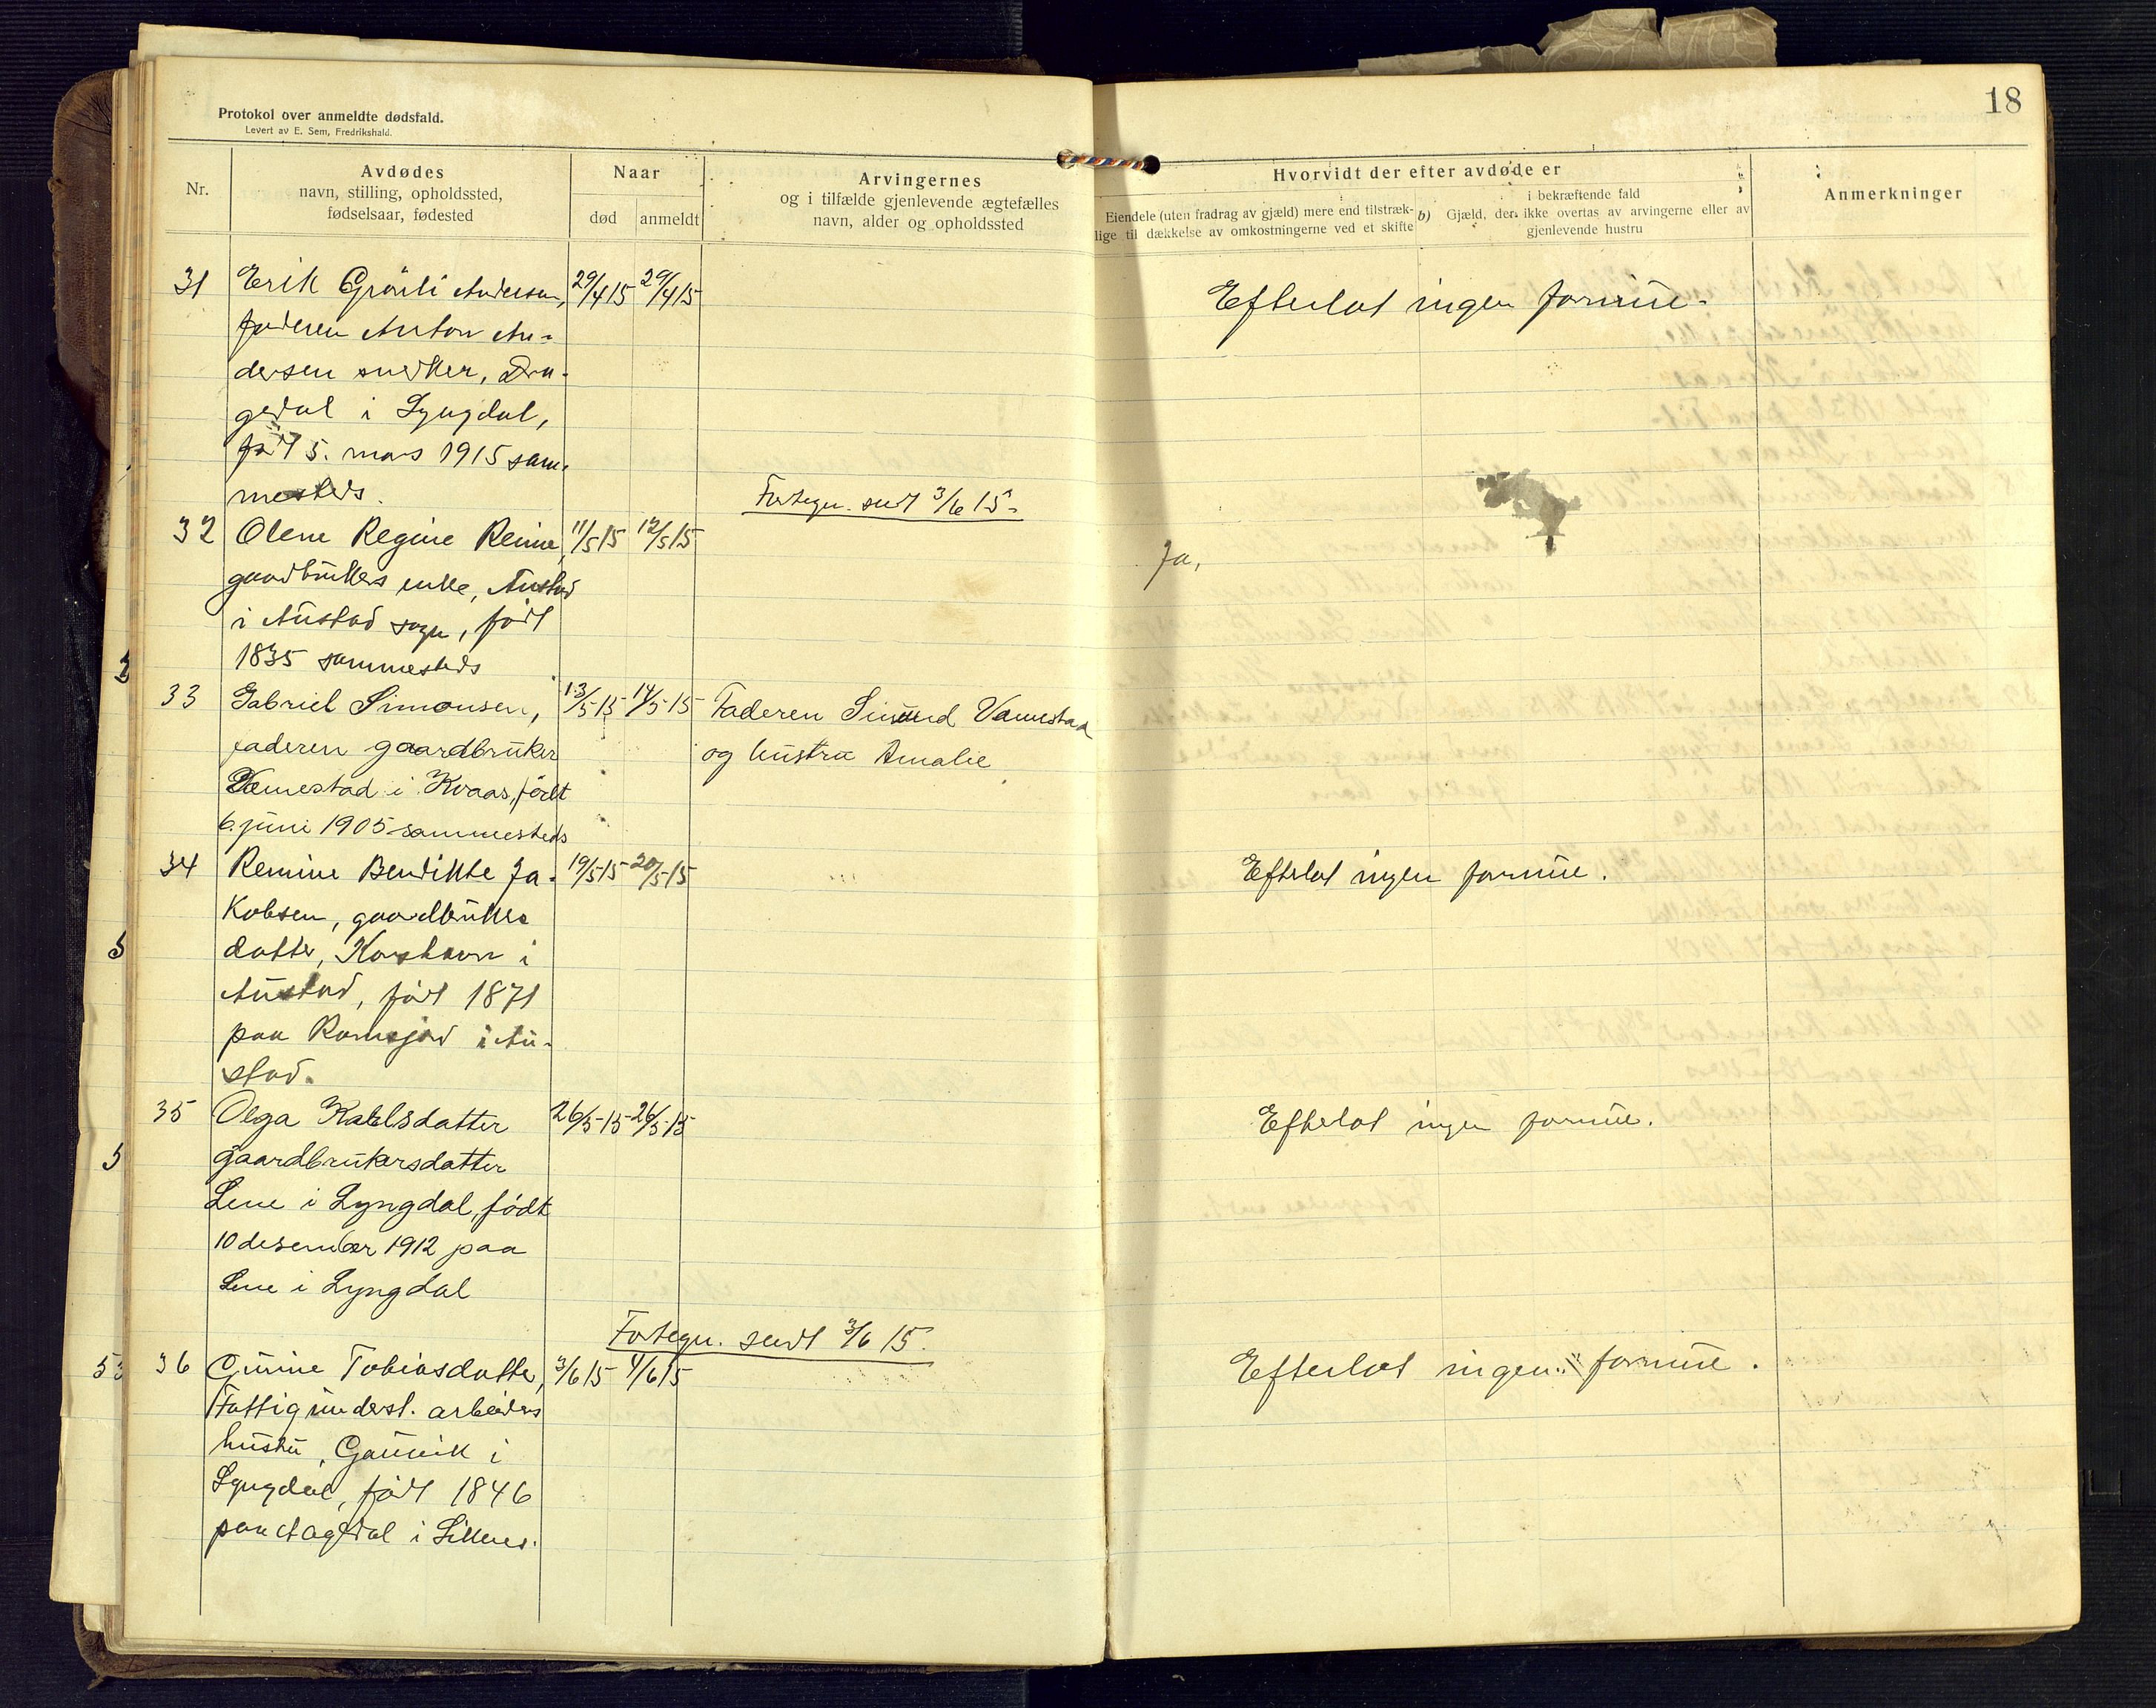 18
Protokol over anmeldte dødsfald.
Levert av E. Sem, Fredrikshald.
Nr.
Avdødes
navn, stilling, opholdssted,
fødselsaar, fødested
Naar
død
anmeldt
Arvingernes
og i tilfælde gjenlevende ægtefælles
navn, alder og opholdssted
Hvorvidt der efter avdøde er
Eiendele (uten fradrag av gjæld) mere end tilstræk-
lige til dækkelse av omkostningerne ved et skifte
i bekræftende fald
b) Gjæld, der ikke overtas av arvingerne eller av
gjenlevende hustru
Anmerkninger
31 Erik Grönli Andersen, 29/4 15 29/4 15 Efterlot ingen formue.
faderen Anton An-
dersen snedker, Dra-
gedal i Lyngdal,
født 5. mars 1915 sam-
mesteds.
Fortegn. sendt 3/6 15.
32 Olene Regine 11/5 15 12/5 15 Ja,
gaardbrukers enke, Austad
i Austad sogn, født
1835 sammesteds
33 Gabriel Simonsen, 13/5 15 14/5 15 Faderen Vemestad
faderen gaardbruker og hustru Amalie
Vemestad i Kvaas, født
6. juni 1905 sammesteds
34 Remine Bendikte Ja- 19/5 15 20/5 15 Efterlot ingen formue.
kobsen, gaardbrukers
datter, Korshavn i
Austad, født 1871
paa i Au-
stad.
35 Olga Karlsdatter 26/5 15 26/5 15 Efterlot ingen formue.
gaardbrukersdatter
Lene i Lyngdal, født
10 desember 1912 paa
Lene i Lyngdal
Fortegn. sendt 3/6 15.
36 Gurine Tobiasdatter, 3/6 15 4/6 15 Efterlot ingen formue.
Fattigunderst. arbeiders
hustru, i
Lyngdal, født 1846
paa i